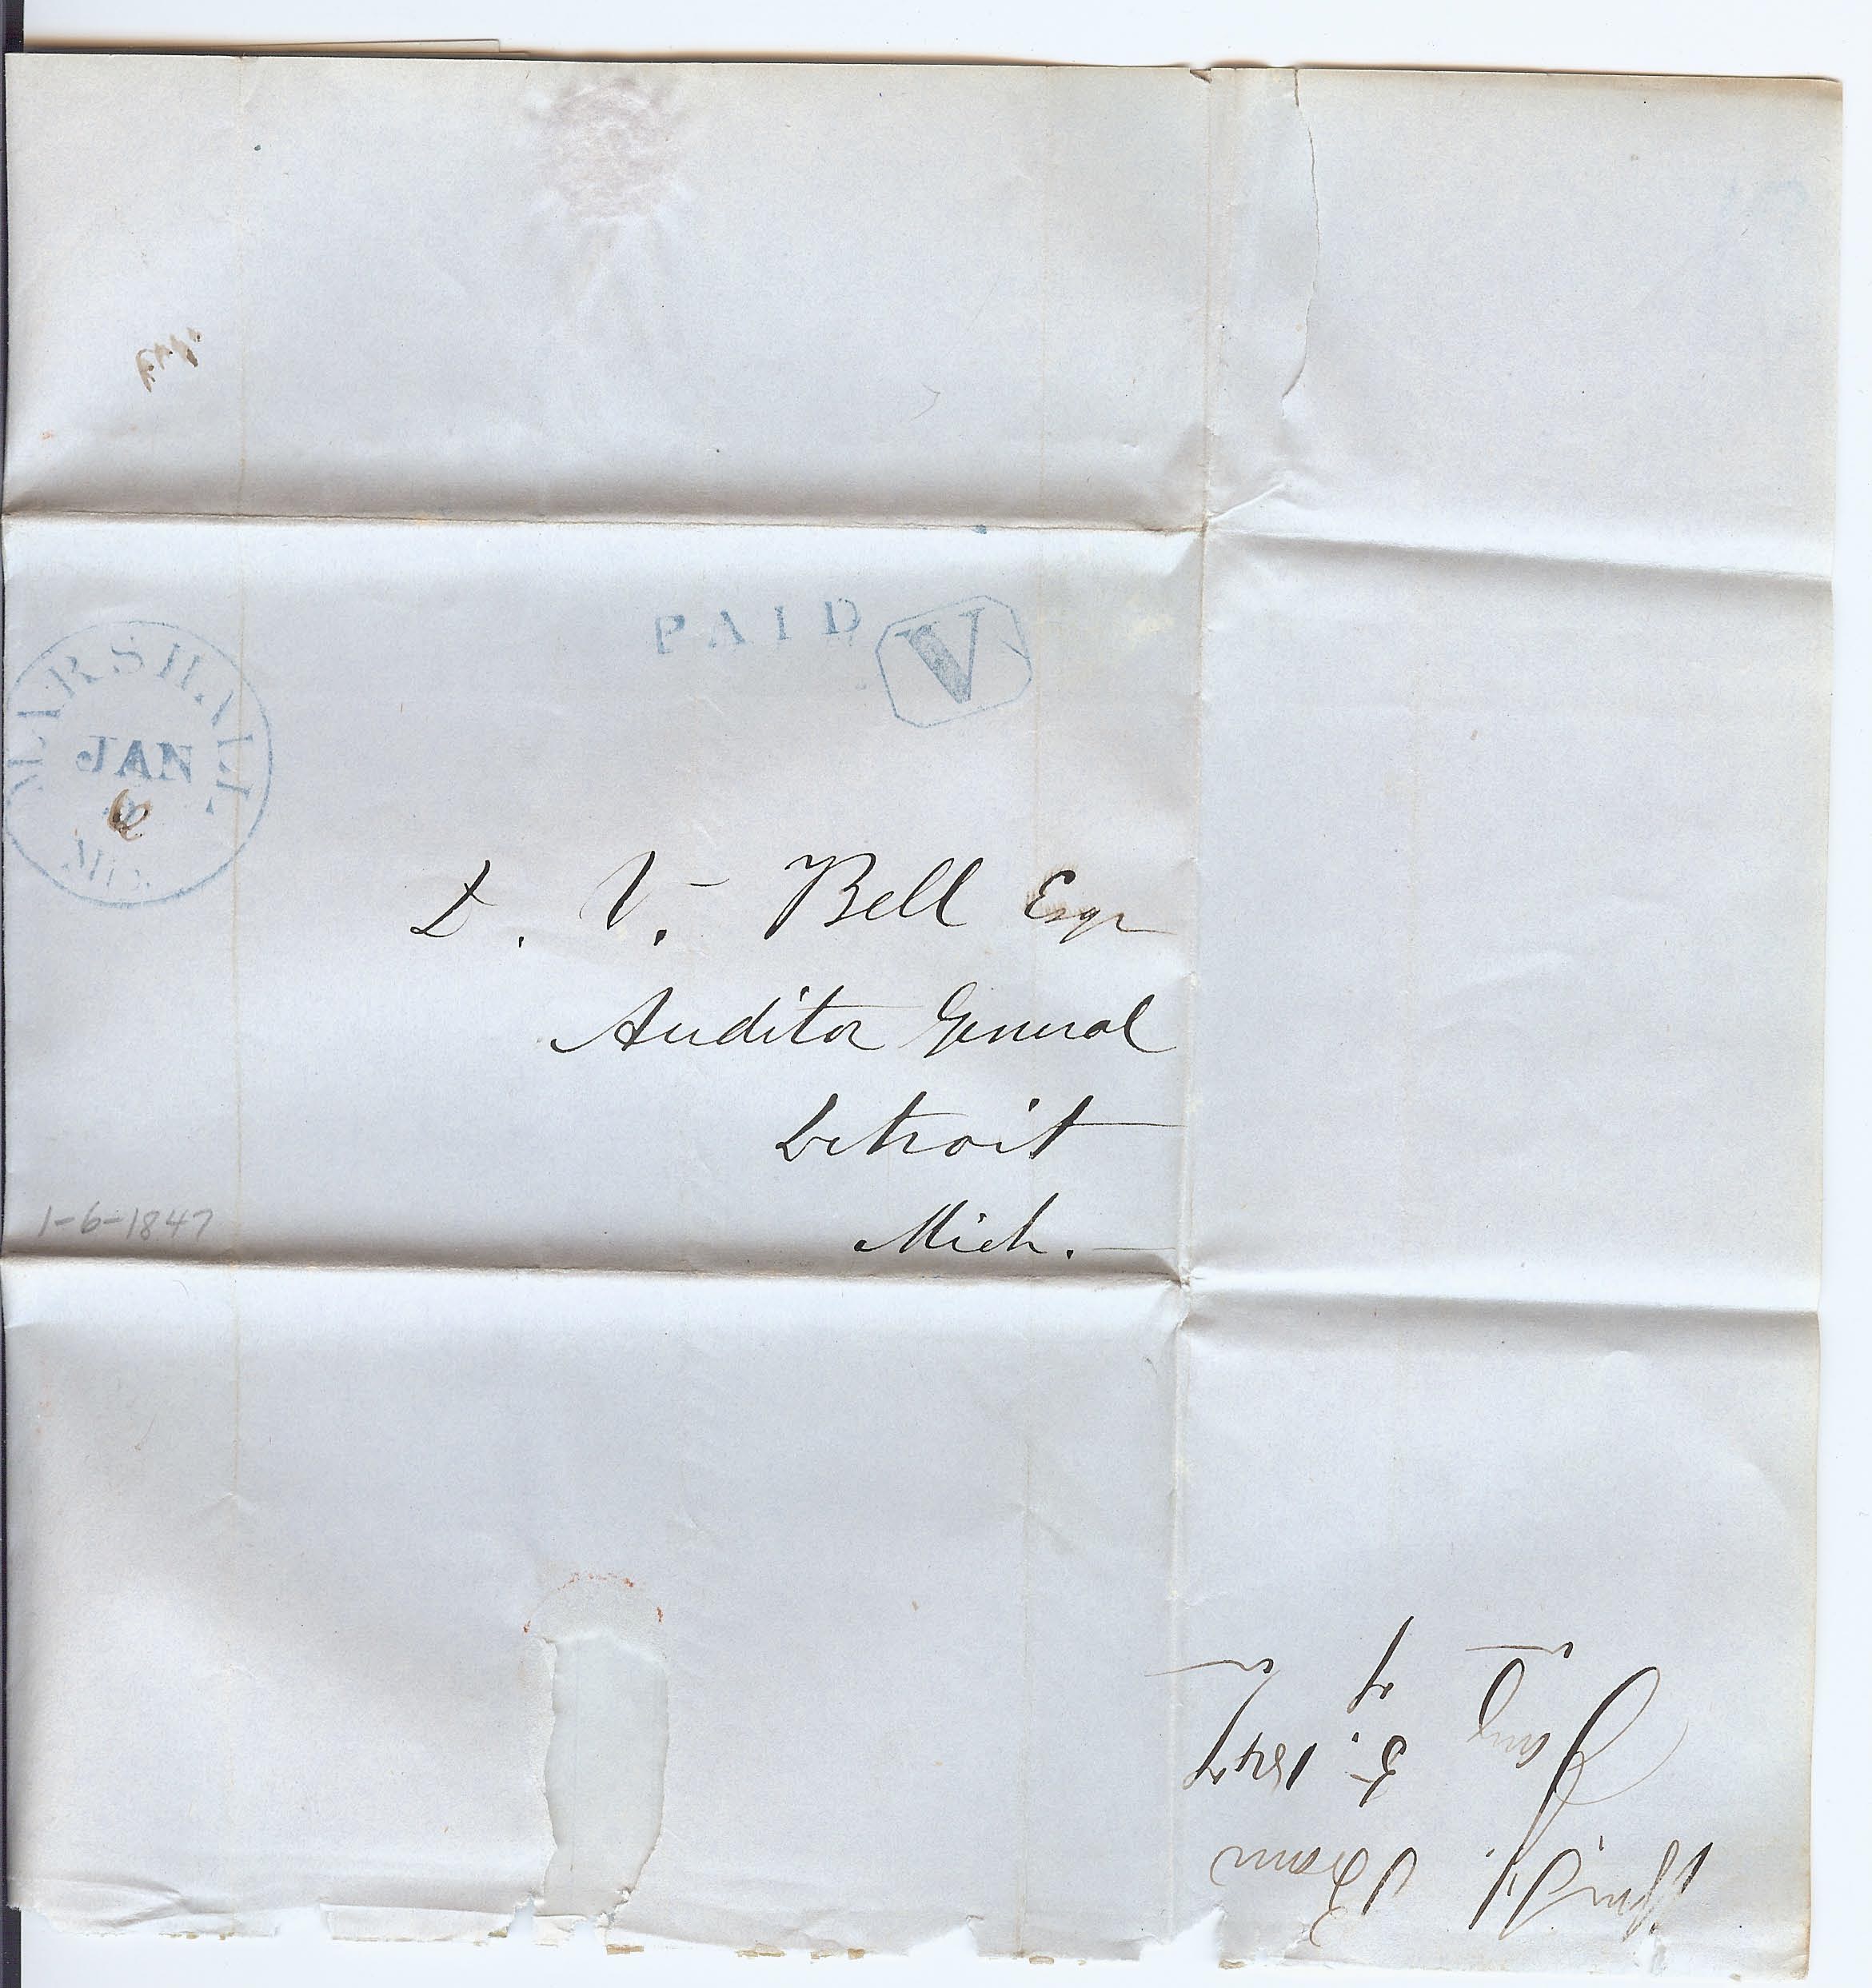 PAID V
MARSHALL
JAN
6
MIC.
D. V. Bell Esqr
Auditor General
Detroit
Mich.
1-6-1847
Jany 5. 1847